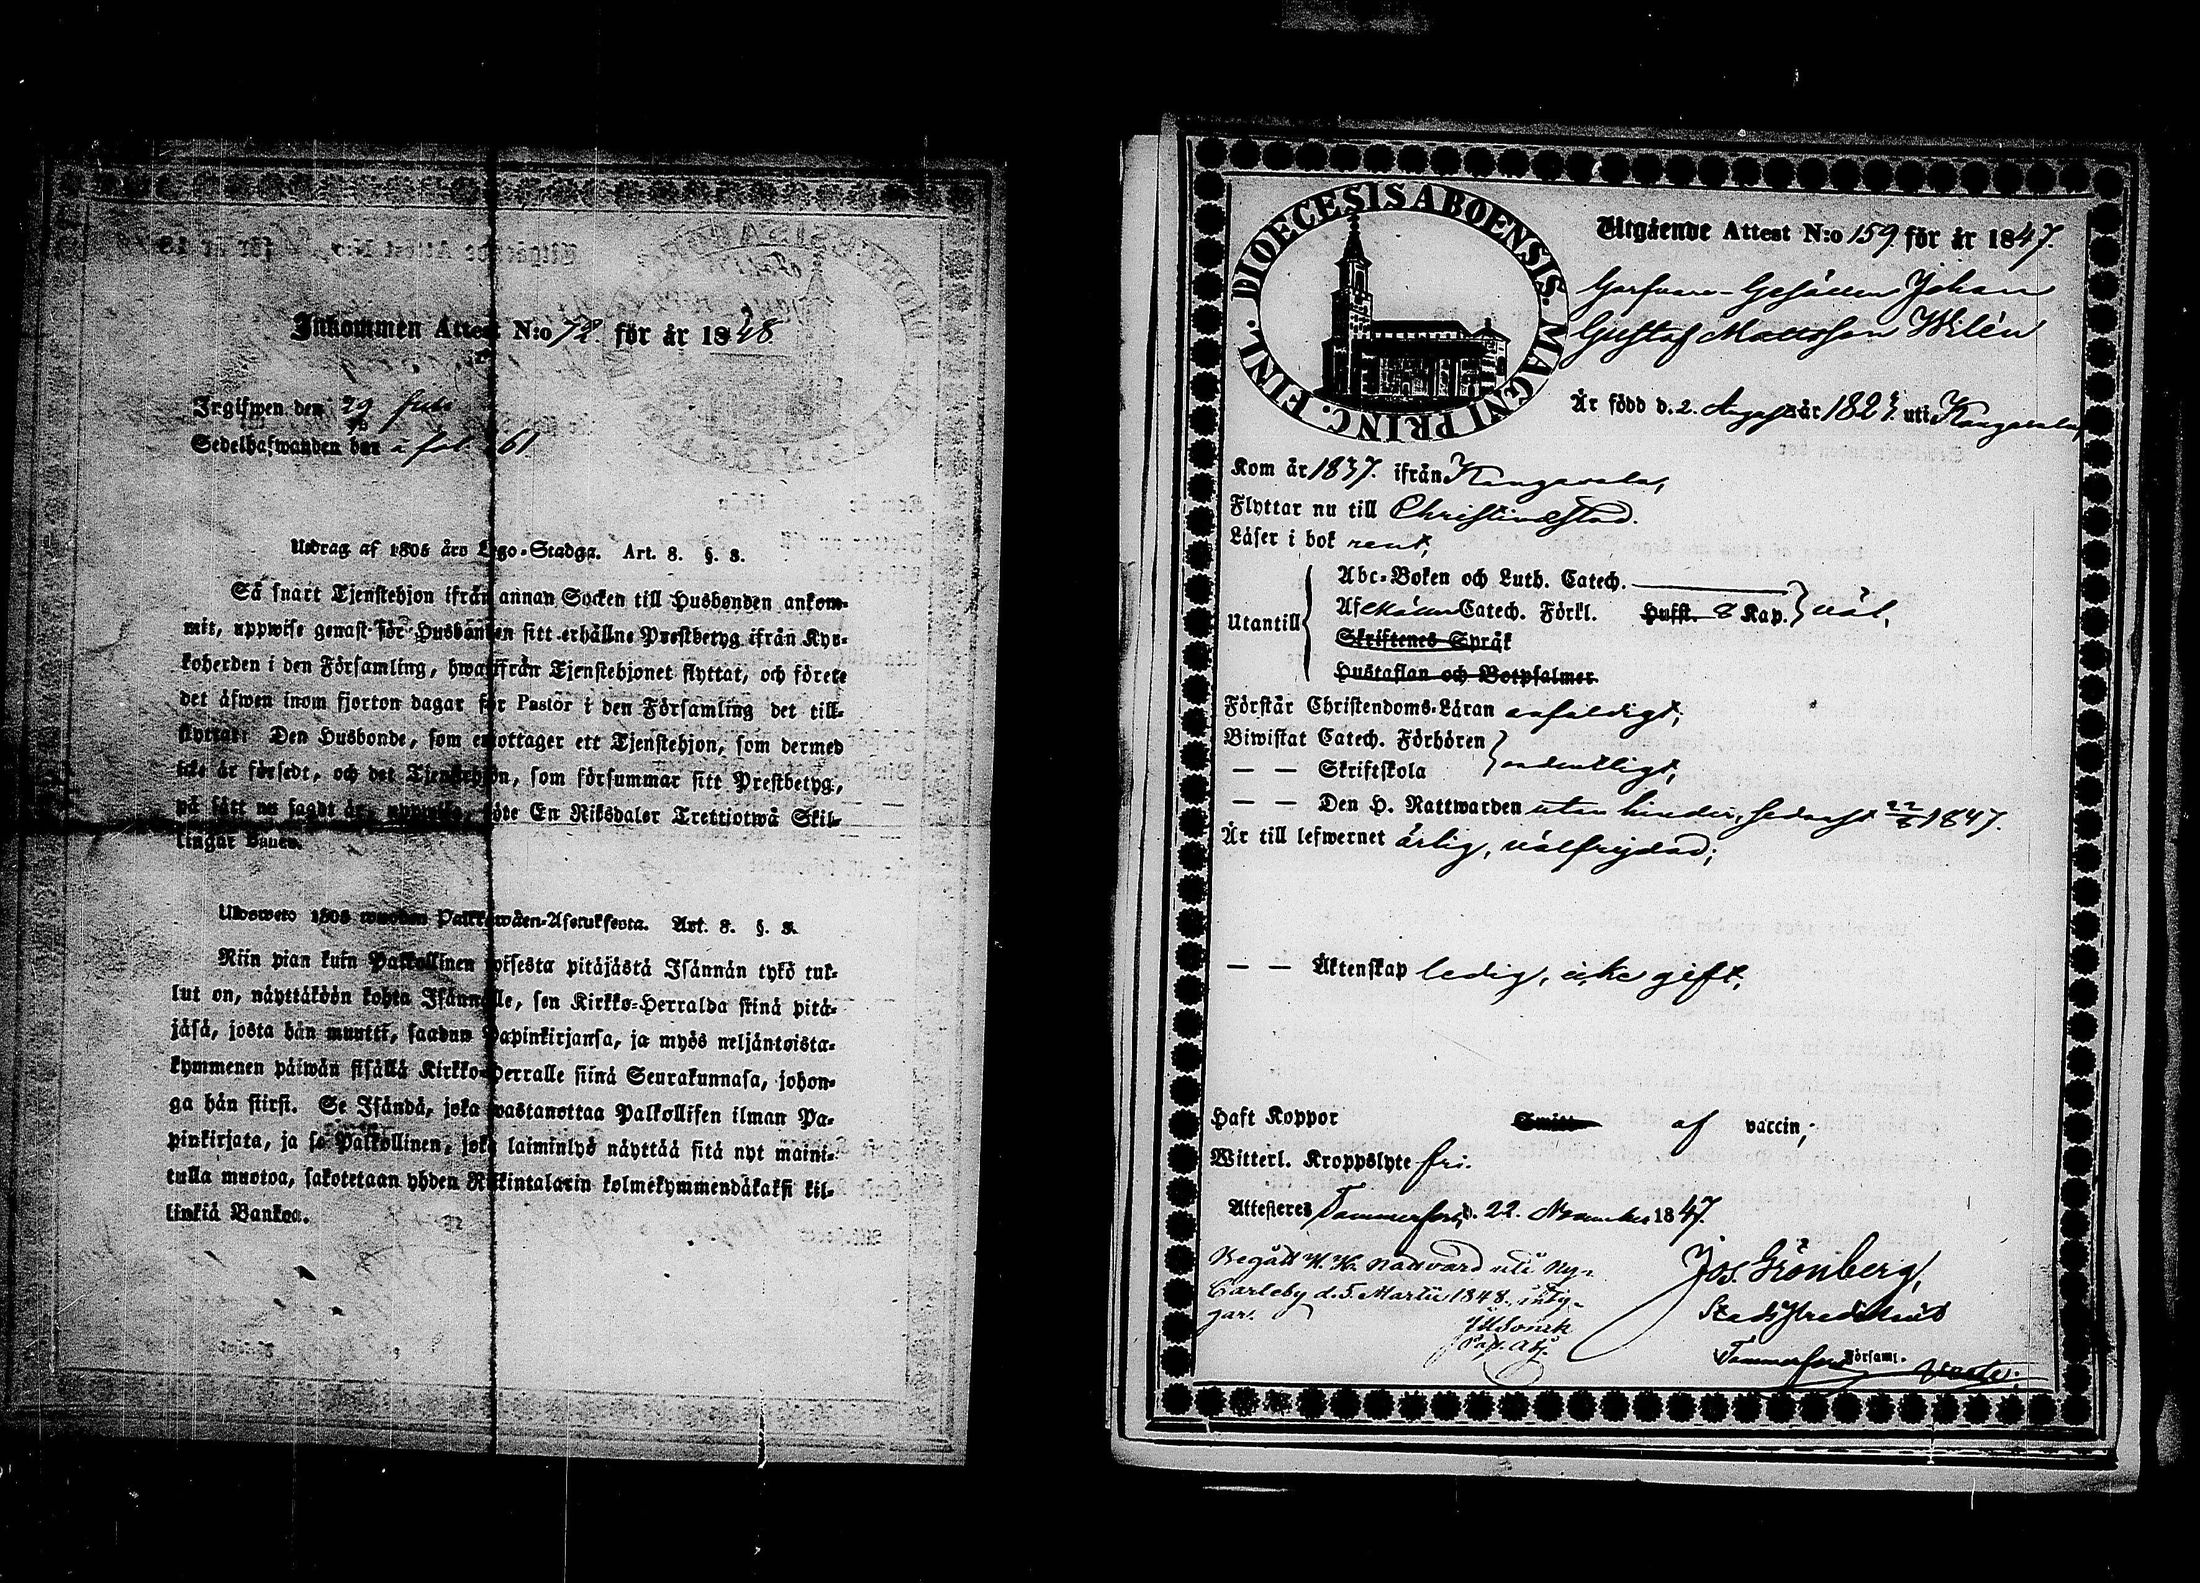 Inkommen Attest N:o 72 för år 1848
Irgifwen den 29
Sedelhafwanden den 61
Utdrag af 1805 års Lego-Stadga. Art. 8. §. 3.
Så snart Tjenstehjon ifrån annan Socken till Husbonden ankom-
mit, uppwise genast för Husbonden sitt erhållne Prestbetyg ifrån Kyr-
koherden i den Församling, hwarifrån Tjenstehjonet flyttat, och förete
det äfwen inom fjorton dagar för Pastor i den Församling det till-
flyttat. Den Husbonde, som emottager ett Tjenstehjon, som dermed
icke är försedt, och det Tjenstehjon, som försummar sitt Prestbetyg,
på sätt nu sagdt är, uppwisa, böte En Riksdaler Trettiotwå Skil-
lingar Banco.
Ulosweto 1805 wuoden Palkkawäen-Asetuksesta. Art. 8. §. 3.
Niin pian kuin Palkollinen toisesta pitäjästä Isännän tykö tul-
lut on, näyttäköön kohta Isännälle, sen Kirkko-Herralda siinä pitä-
jäsä, josta hän muutti, saadun Papinkirjansa, ja myös neljäntoista-
kymmenen päiwän sisällä Kirkko-Herralle siinä Seurakunnasa, johon-
ga hän siirsi. Se Isändä, joka wastanottaa Palkollisen ilman Pa-
pinkirjata, ja se Palkollinen, joka laiminlyö näyttää sitä nyt maini-
tulla muotoa, sakotetaan yhden Riikintalarin kolmekymmendäkaksi kil-
linkiä Bankoa.
DIOECESIS ABOENSIS. MAGNI PRINC. FINL.
Utgående Attest N:o 159 för år 1847.
Garfvare-Gesällen Johan
Gustaf Mattsson Wilén
Är född d. 2. Augusti år 1823 uti Kangasala,
Kom år 1837. ifrån Kangasala,
Flyttar nu till Christinestad.
Läser i bok rent,
Utantill
Abc-Boken och Luth. Catech.
Af Catech. Förkl. Husst. 8 Kap. väl,
Skriftenes Språk
Hustaflan och Botpsalmer
Förstår Christendoms-Läran enfaldigt;
Biwistat Catech. Förhören
— — Skriftskola ordentligt,
— — Den H. Nattwarden utan hinder, sednast 22/8 1847.
Är till lefwernet ärlig, välfrejdad;
— — Äktenskap ledig, icke gift,
Haft Koppor Smitt- af vaccin,
Witterl. Kroppslyte fri.
Attesteres Tammerfors d. 22. November 1847.
Begått H. H. Nattvard uti Ny-
Carleby d. 5. Martii 1848, intÿ-
gar.
Jos. Grönberg,
Stads Predikant
Tammerfors Församl.